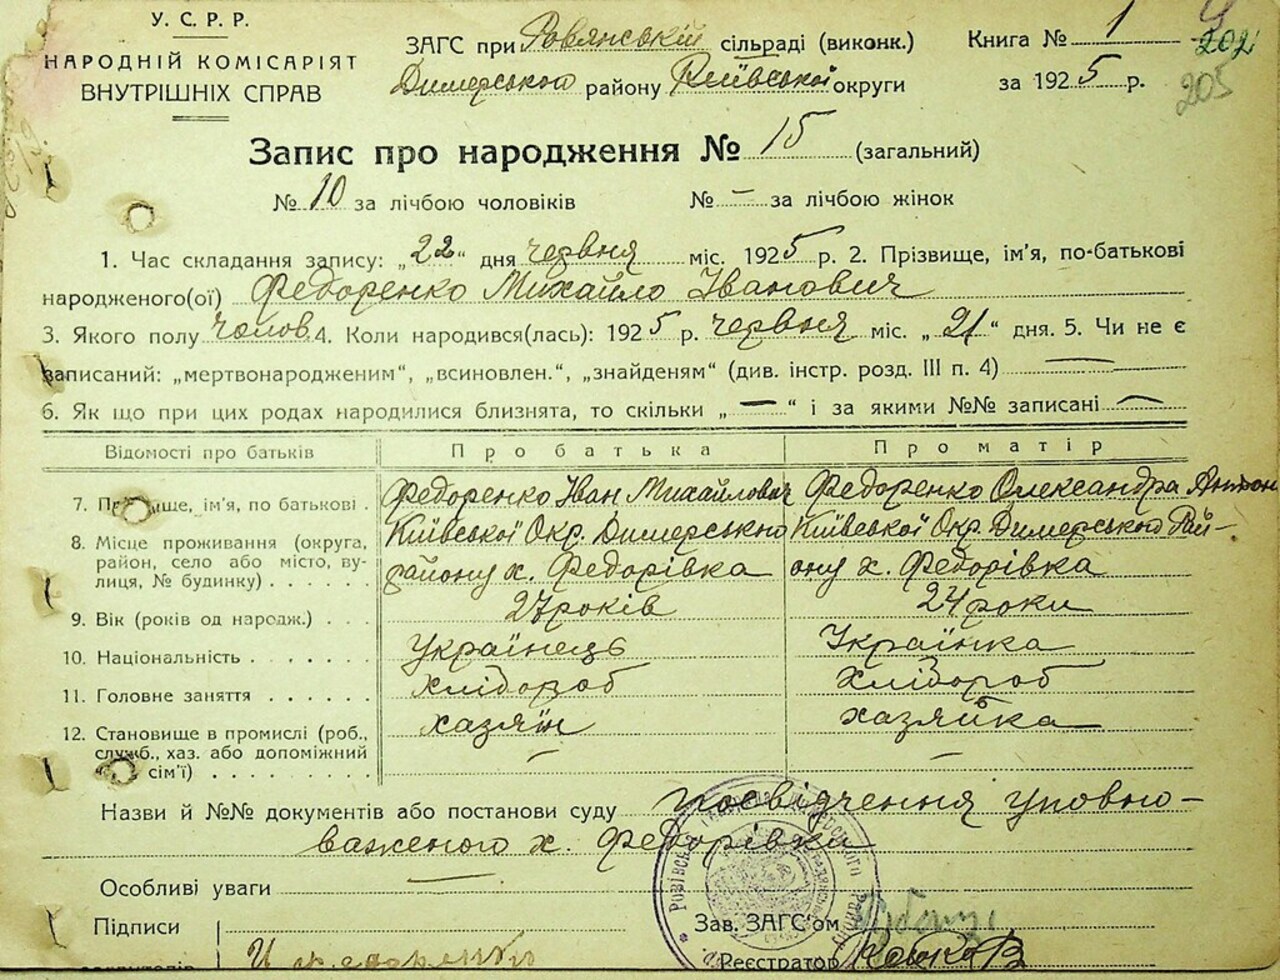 У. С. Р. Р.
НАРОДНІЙ КОМІСАРІЯТ
ВНУТРІШНІХ СПРАВ
ЗАГС при Ровянській сільраді (виконк.)
Димерського району Київської округи
Книга № 1
за 1925 р.
202
205
Запис про народження № 15 (загальний)
№ 10 за лічбою чоловіків № – за лічбою жінок
1. Час складання запису: „22“ дня червня міс. 1925 р. 2. Прізвище, ім'я, по-батькові
народженого(ої) Федоренко Михайло Іванович
3. Якого полу чолов. 4. Коли народився(лась): 1925 р. червня міс. „21“ дня. 5. Чи не є
записаний: „мертвонародженим“, „всиновлен.“, „знайденям“ (див. інстр. розд. III п. 4) —
6. Як що при цих родах народилися близнята, то скільки „—“ і за якими №№ записані —
Відомості про батьків Про батька Про матір
7. Прізвище, ім'я, по батькові . Федоренко Іван Михайлович Федоренко Олександра Антон
8. Місце проживання (округа, район, село або місто, вулиця, № будинку) . . . . . Київської Окр. Димерського району х. Федорівка Київської Окр. Димерського Району х. Федорівка
9. Вік (років од народж.) . . . 27 років 24 роки
10. Національність . . . . . . Українець Українка
11. Головне заняття . . . . . . хлібороб хлібороб
12. Становище в промислі (роб., служб., хаз. або допоміжний сім'ї) . . . . . . . . хазяїн – хазяйка –
Назви й №№ документів або постанови суду посвідчення уповно-
важеного х. Федорівки
Особливі уваги —
Підписи
Зав. ЗАГС'ом
Реєстратор